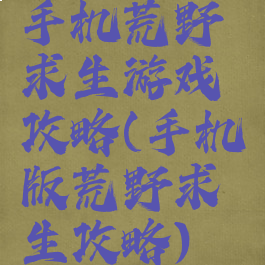 手机荒野
求生游戏
攻略(手机
版荒野求
生攻略)